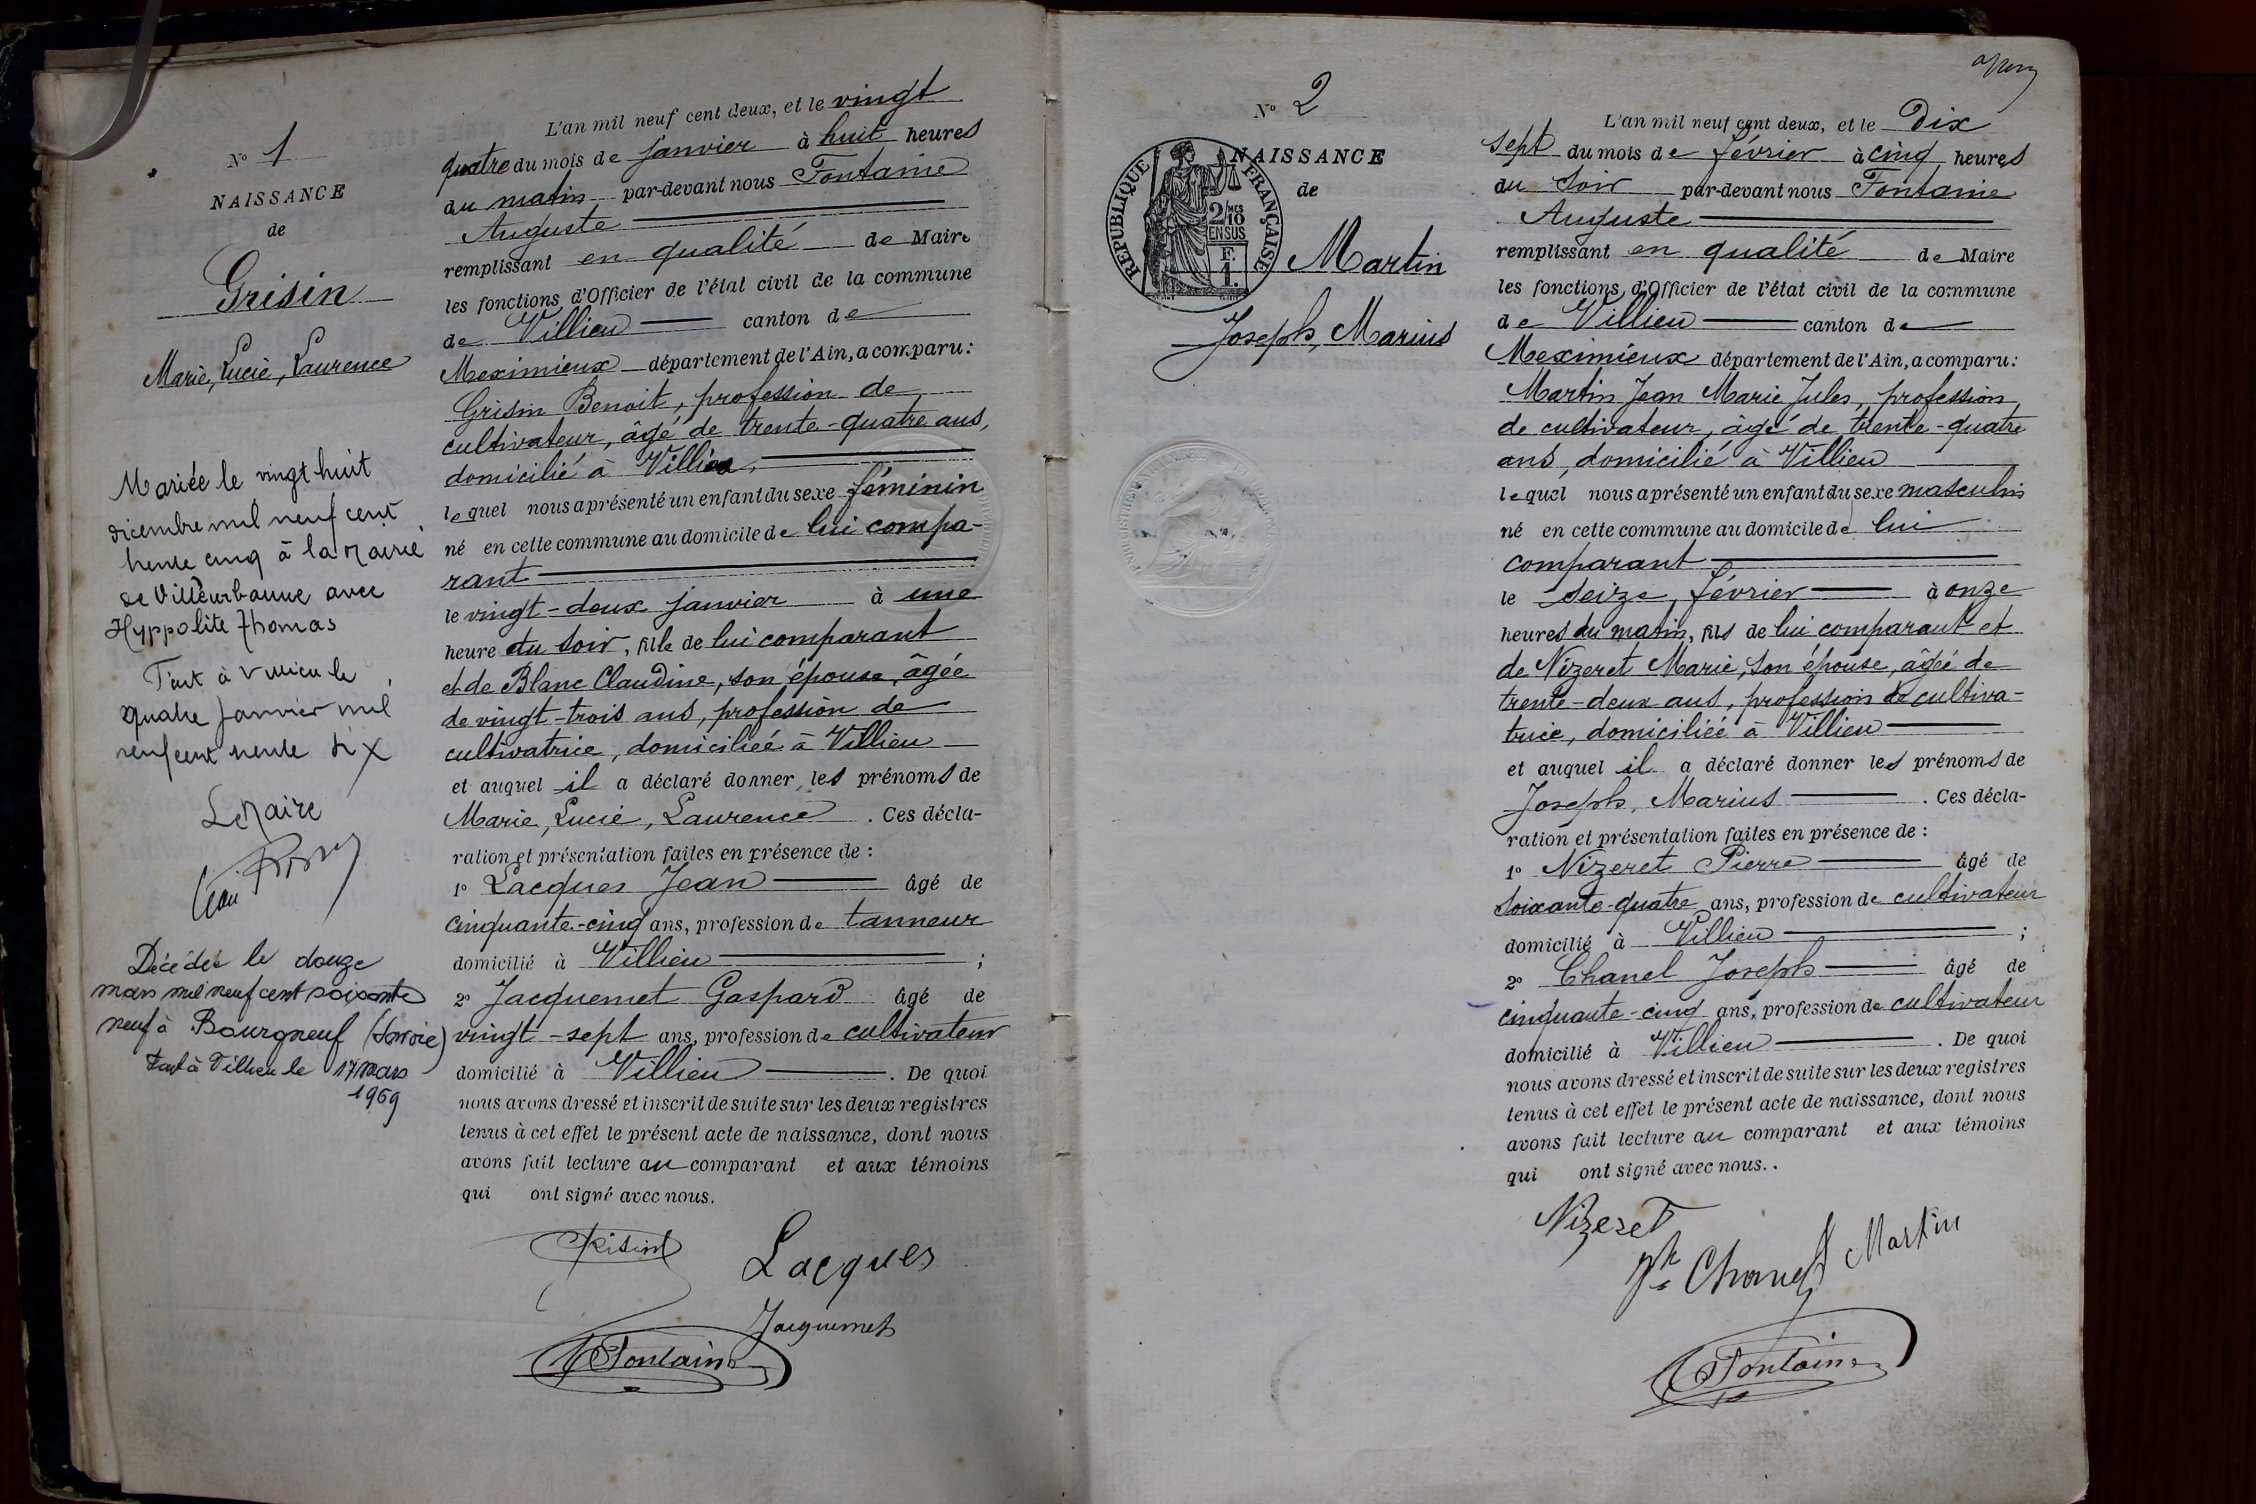 N° 1
NAISSANCE
de
Grisin
Marie, Lucie, Laurence
Mariée le vingt huit
décembre mil neuf cent
trente cinq à la Mairie
de Villeurbanne avec
Hyppolite Thomas
Fait à Villieu le
quatre Janvier mil
neuf cent trente six
Le Maire
Décédée le douze
mars mil neuf cent soixante
neuf à Bourgneuf (Savoie)
Fait à Villieu le 17 mars
1969
L'an mil neuf cent deux, et le vingt
quatre du mois de janvier à huit heures
du matin par-devant nous Fontaine
Auguste
remplissant en qualité de Maire
les fonctions d'Officier de l'état civil de la commune
de Villieu canton de
Meximieux département de l'Ain, a comparu:
Grisin Benoit, profession de
cultivateur, âgé de trente-quatre ans,
domicilié à Villieu,
lequel nous a présenté un enfant du sexe féminin
né en cette commune au domicile de lui compa-
rant
le vingt-deux janvier à une
heure du soir, fille de lui comparant
et de Blanc Claudine, son épouse, âgée
de vingt-trois ans, profession de
cultivatrice, domiciliée à Villieu
et auquel il a déclaré donner les prénoms de
Marie, Lucie, Laurence. Ces décla-
ration et présentation faites en présence de:
1° Lacques Jean âgé de
cinquante-cinq ans, profession de tanneur
domicilié à Villieu ;
2° Jacquemet Gaspard âgé de
vingt-sept ans, profession de cultivateur
domicilié à Villieu. De quoi
nous avons dressé et inscrit de suite sur les deux registres
tenus à cet effet le présent acte de naissance, dont nous
avons fait lecture au comparant et aux témoins
qui ont signé avec nous.
Grisin
Lacques
Jacquemet
Fontaine
N° 2
NAISSANCE
de
RÉPUBLIQUE FRANÇAISE
2/10 MES
EN SUS
F.
1.
Martin
Joseph, Marius
L'an mil neuf cent deux, et le Dix
sept du mois de février à cinq heures
du soir par-devant nous Fontaine
Auguste
remplissant en qualité de Maire
les fonctions d'Officier de l'état civil de la commune
de Villieu canton de
Meximieux département de l'Ain, a comparu:
Martin Jean Marie Jules, profession
de cultivateur, âgé de trente-quatre
ans, domicilié à Villieu
lequel nous a présenté un enfant du sexe masculin
né en cette commune au domicile de lui
comparant
le seize février à onze
heures du matin, fils de lui comparant et
de Nizeret Marie, son épouse, âgée de
trente-deux ans, profession de cultiva-
trice, domiciliée à Villieu
et auquel il a déclaré donner les prénoms de
Joseph, Marius. Ces décla-
ration et présentation faites en présence de:
1° Nizeret Pierre âgé de
soixante-quatre ans, profession de cultivateur
domicilié à Villieu ;
2° Chanel Joseph âgé de
cinquante-cinq ans, profession de cultivateur
domicilié à Villieu. De quoi
nous avons dressé et inscrit de suite sur les deux registres
tenus à cet effet le présent acte de naissance, dont nous
avons fait lecture au comparant et aux témoins
qui ont signé avec nous..
Nizeret
Jh Chanel Martin
Fontaine